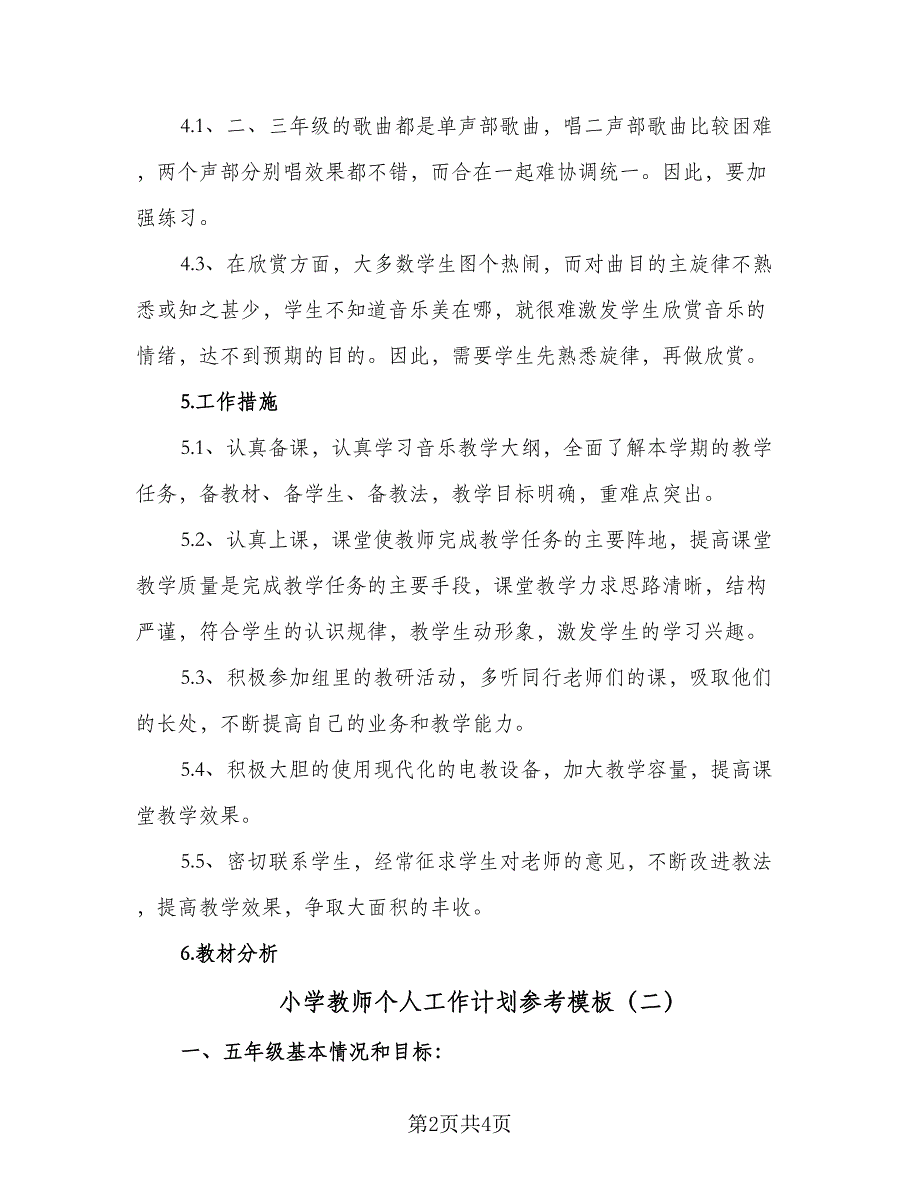 4.1、二、三年级的歌曲都是单声部歌曲，唱二声部歌曲比较困难
，两个声部分别唱效果都不错，而合在一起难协调统一。因此，要加
强练习。
4.3、在欣赏方面，大多数学生图个热闹，而对曲目的主旋律不熟
悉或知之甚少，学生不知道音乐美在哪，就很难激发学生欣赏音乐的
情绪，达不到预期的目的。因此，需要学生先熟悉旋律，再做欣赏。
5.工作措施
5.1、认真备课，认真学习音乐教学大纲，全面了解本学期的教学
任务，备教材、备学生、备教法，教学目标明确，重难点突出。
5.2、认真上课，课堂使教师完成教学任务的主要阵地，提高课堂
教学质量是完成教学任务的主要手段，课堂教学力求思路清晰，结构
严谨，符合学生的认识规律，教学生动形象，激发学生的学习兴趣。
5.3、积极参加组里的教研活动，多听同行老师们的课，吸取他们
的长处，不断提高自己的业务和教学能力。
5.4、积极大胆的使用现代化的电教设备，加大教学容量，提高课
堂教学效果。
5.5、密切联系学生，经常征求学生对老师的意见，不断改进教法
，提高教学效果，争取大面积的丰收。
6.教材分析
小学教师个人工作计划参考模板（二）
一、五年级基本情况和目标：
第2页共4页